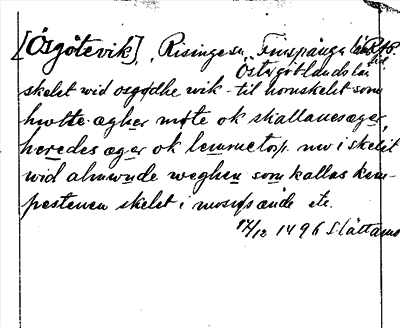 [Ösgötevik], Risinge sn, Finspånga läns
Östergötlands län
skelet wid osgødhe wik - til hornskelet som
hwtte ægher møte ok skallanes ager,
heredes æger ok lemmetorp nw i skelit
wid almwnde weghen som kallas kem-
pestenen skelet i mosés ænde etc.
17/12 1496 Slättamo